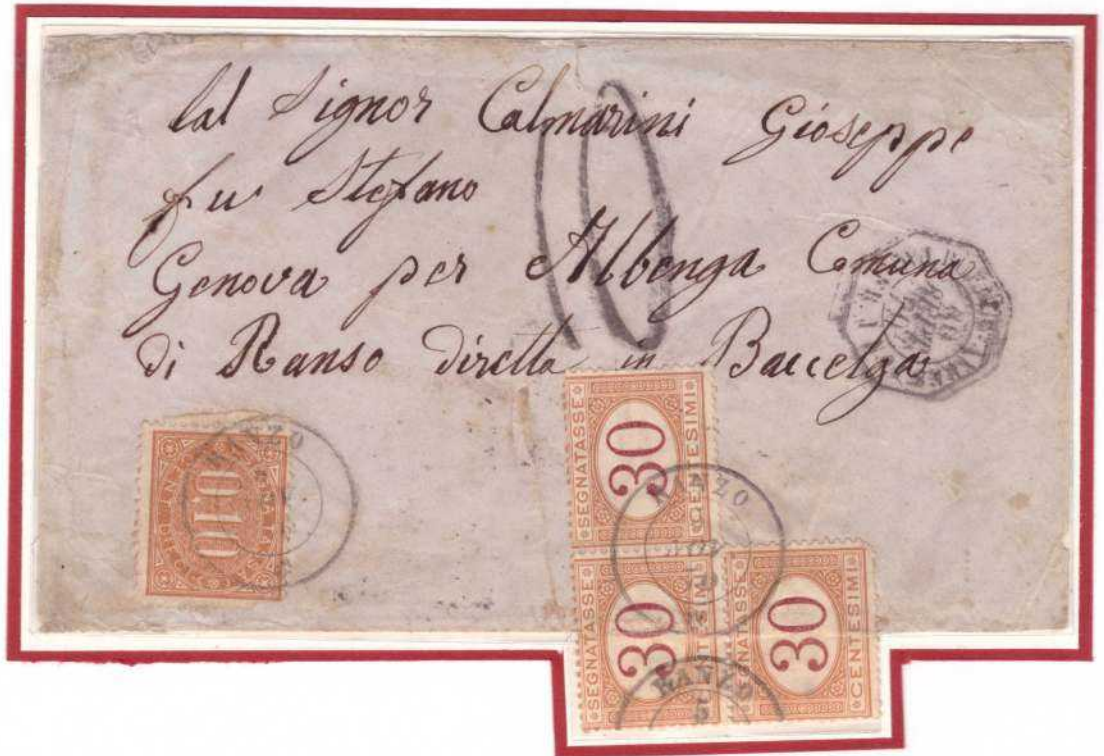 Lal Signor Calmarini Gioseppe
fu Stefano
Genova per Albenga Comuna
di Ranso diretta in Baccelga
10
0,10
RANZO
SEGNATASSE
30
CENTESIMI
RANZO
SEGNATASSE
30
SEGNATASSE
30
CENTESIMI
RANZO